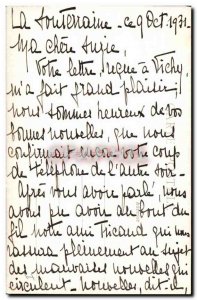 La Souterraine - ce 9 Oct. 1971.
Ma chère Suzie,
Votre lettre, reçue à Vichy,
m'a fait grand plaisir;
nous sommes heureux de vos
bonnes nouvelles, que nous
confirmait encore votre coup
de téléphone de l'autre soir -
Après vous avoir parlé, nous
avons pu avoir au bout du
fil notre ami Ficaud qui nous
rassura pleinement au sujet
des mauvaises nouvelles qui
circulent - nouvelles, dit-il,